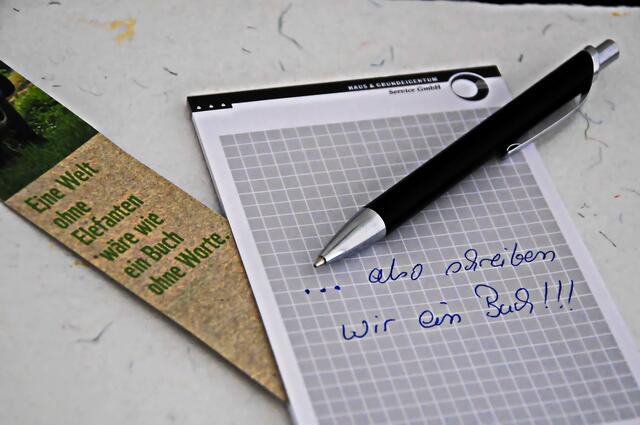 Eine Welt
ohne
Elefanten
wäre wie
ein Buch
ohne Worte.
HAUS & GRUNDEIGENTUM
Service GmbH
... also schreiben
wir ein Buch!!!